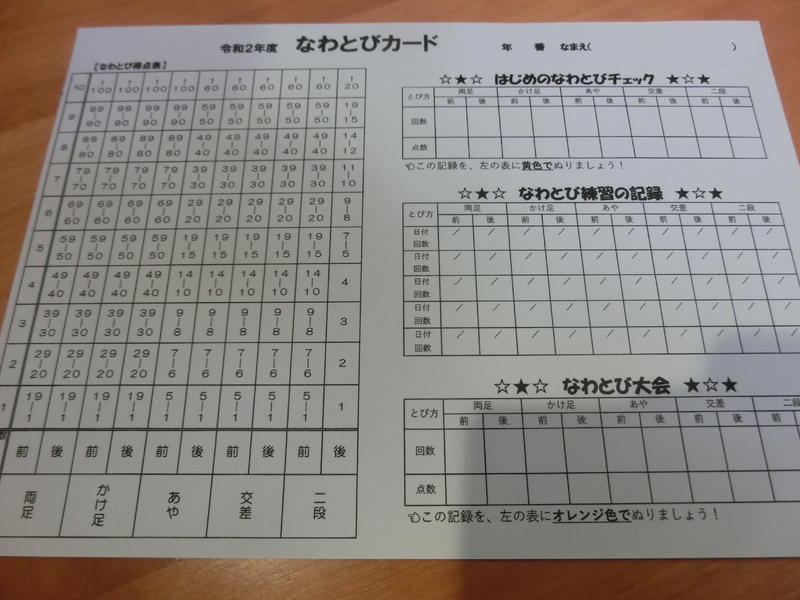 令和2年度 なわとびカード 年 番 なまえ( )
【なわとび得点表】
10 ↑100 ↑100 ↑100 ↑100 ↑60 ↑60 ↑60 ↑60 ↑60 ↑20
9 99|90 99|90 99|90 99|90 59|50 59|50 59|50 59|50 59|50 19|15
8 89|80 89|80 89|80 89|80 49|40 49|40 49|40 49|40 49|40 14|12
7 79|70 79|70 79|70 79|70 39|30 39|30 39|30 39|30 39|30 11|10
6 69|60 69|60 69|60 69|60 29|20 29|20 29|20 29|20 29|20 9|8
5 59|50 59|50 59|50 59|50 19|15 19|15 19|15 19|15 19|15 7|5
4 49|40 49|40 49|40 49|40 14|10 14|10 14|10 14|10 14|10 4
3 39|30 39|30 39|30 39|30 9|8 9|8 9|8 9|8 9|8 3
2 29|20 29|20 29|20 29|20 7|6 7|6 7|6 7|6 7|6 2
1 19|1 19|1 19|1 19|1 5|1 5|1 5|1 5|1 5|1 1
前 後 前 後 前 後 前 後 前 後
両足 かけ足 あや 交差 二段
☆★☆ はじめのなわとびチェック ★☆★
とび方 両足 かけ足 あや 交差 二段
前 後 前 後 前 後 前 後 前 後
回数
点数
この記録を、左の表に黄色でぬりましょう！
☆★☆ なわとび練習の記録 ★☆★
とび方 両足 かけ足 あや 交差 二段
前 後 前 後 前 後 前 後 前 後
日付 / / / / / / / / / /
回数
日付 / / / / / / / / / /
回数
日付 / / / / / / / / / /
回数
日付 / / / / / / / / / /
回数
日付 / / / / / / / / / /
回数
☆★☆ なわとび大会 ★☆★
とび方 両足 かけ足 あや 交差 二段
前 後 前 後 前 後 前 後 前
回数
点数
この記録を、左の表にオレンジ色でぬりましょう！